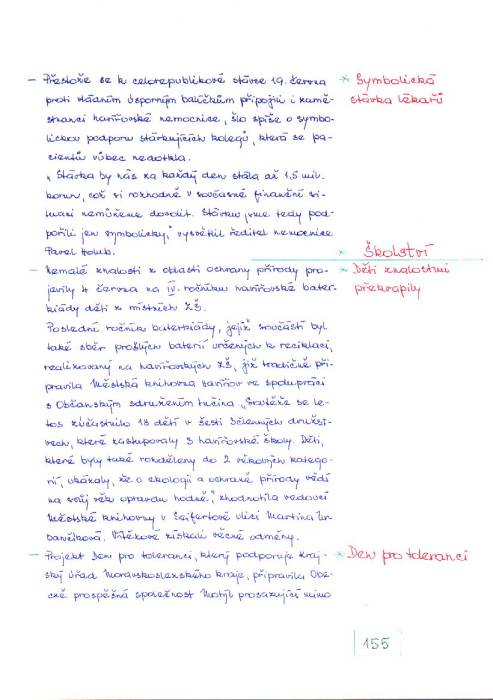 – Přestože se k celorepublikové stávce 19. června
* Symbolická
proti vládním úsporným balíčkům připojili i zamě-
stávka lékařů
stnanci havířovské nemocnice, šlo spíše o symbo-
lickou podporu stávkujících kolegů, která se pa-
cientů vůbec nedotkla.
„Stávka by nás na každý den stála až 1,5 mil.
korun, což si rozhodně v současné finanční si-
tuaci nemůžeme dovolit. Stávku jsme tedy pod-
pořili jen symbolicky," vysvětlil ředitel nemocnice
Pavel Holub.
* Školství
– Nemalé znalosti z oblasti ochrany přírody pro-
* Děti znalostmi
jevily 4. června na IV. ročníku havířovské bater-
překvapily
kiády děti z místních ZŠ.
Poslední ročník baterkiády, jejíž součástí byl
také sběr prošlých baterií určených k recyklaci,
realizovaný na havířovských ZŠ, již tradičně při-
pravila Městská knihovna Havířov ve spolupráci
s Občanským sdružením Lučina. „Soutěže se le-
tos zúčastnilo 18 dětí v šesti 3členných družst-
vech, které zastupovaly 3 havířovské školy. Děti,
které byly také rozděleny do 2 věkových katego-
rií, ukázaly, že o ekologii a ochraně přírody vědí
na svůj věk opravdu hodně," zhodnotila vedoucí
Městské knihovny v Seifertově ulici Martina Ur-
baníková. Vítězové získali věcné odměny.
– Projekt Den pro toleranci, který podporuje Kraj-
* Den pro toleranci
ský úřad Moravskoslezského kraje, připravila Obe-
cně prospěšná společnost Motýl prosazující mimo
155